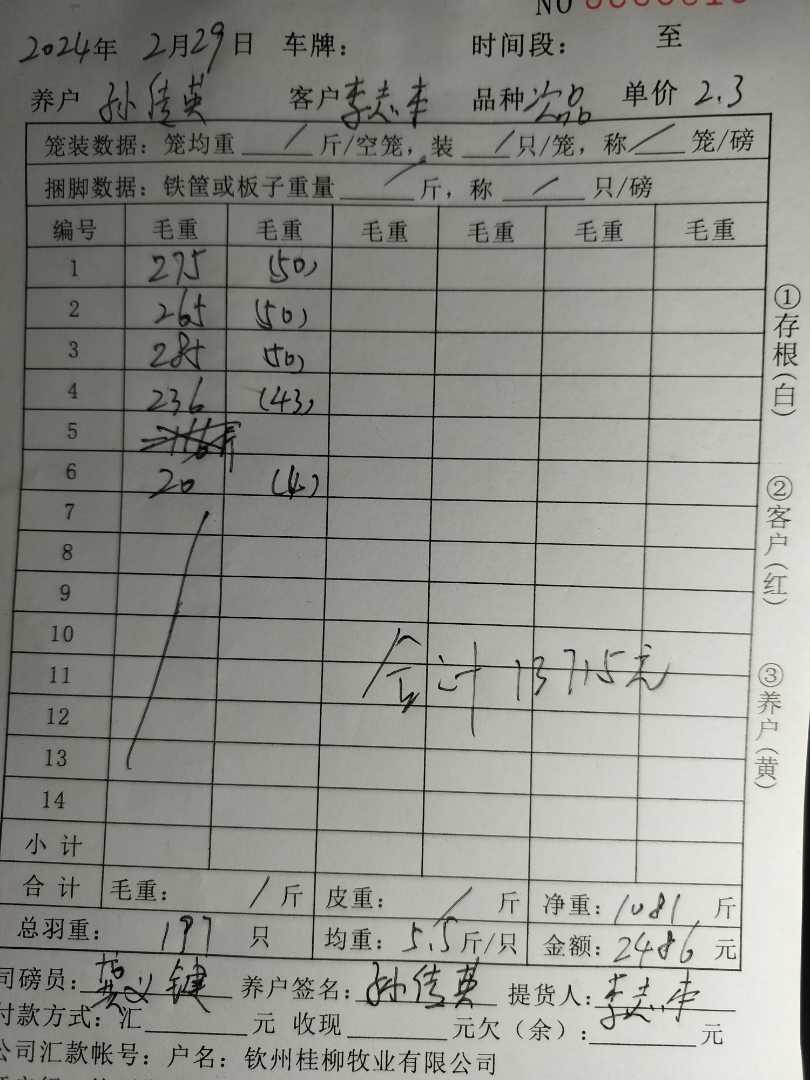 NO
2024年 2月29日 车牌： 时间段： 至
养户 孙佳英 客户 李志丰 品种 次品 单价 2.3
笼装数据：笼均重 / 斤/空笼，装 / 只/笼，称 / 笼/磅
捆脚数据：铁筐或板子重量 / 斤，称 / 只/磅
编号 毛重 毛重 毛重 毛重 毛重 毛重
1 275 (50)
2 265 (50)
3 285 (50)
4 236 (43)
5
6 20 (4)
7
8
9
10
合计13715元
11
12
13
14
小计
合计 毛重： / 斤 皮重： / 斤 净重：1081 斤
总羽重： 197 只 均重：5.5斤/只 金额：2486 元
司磅员： 义键 养户签名：孙佳英 提货人：李志丰
付款方式：汇 元 收现 元欠（余）： 元
公司汇款帐号：户名：钦州桂柳牧业有限公司
①存根(白)
②客户(红)
③养户(黄)